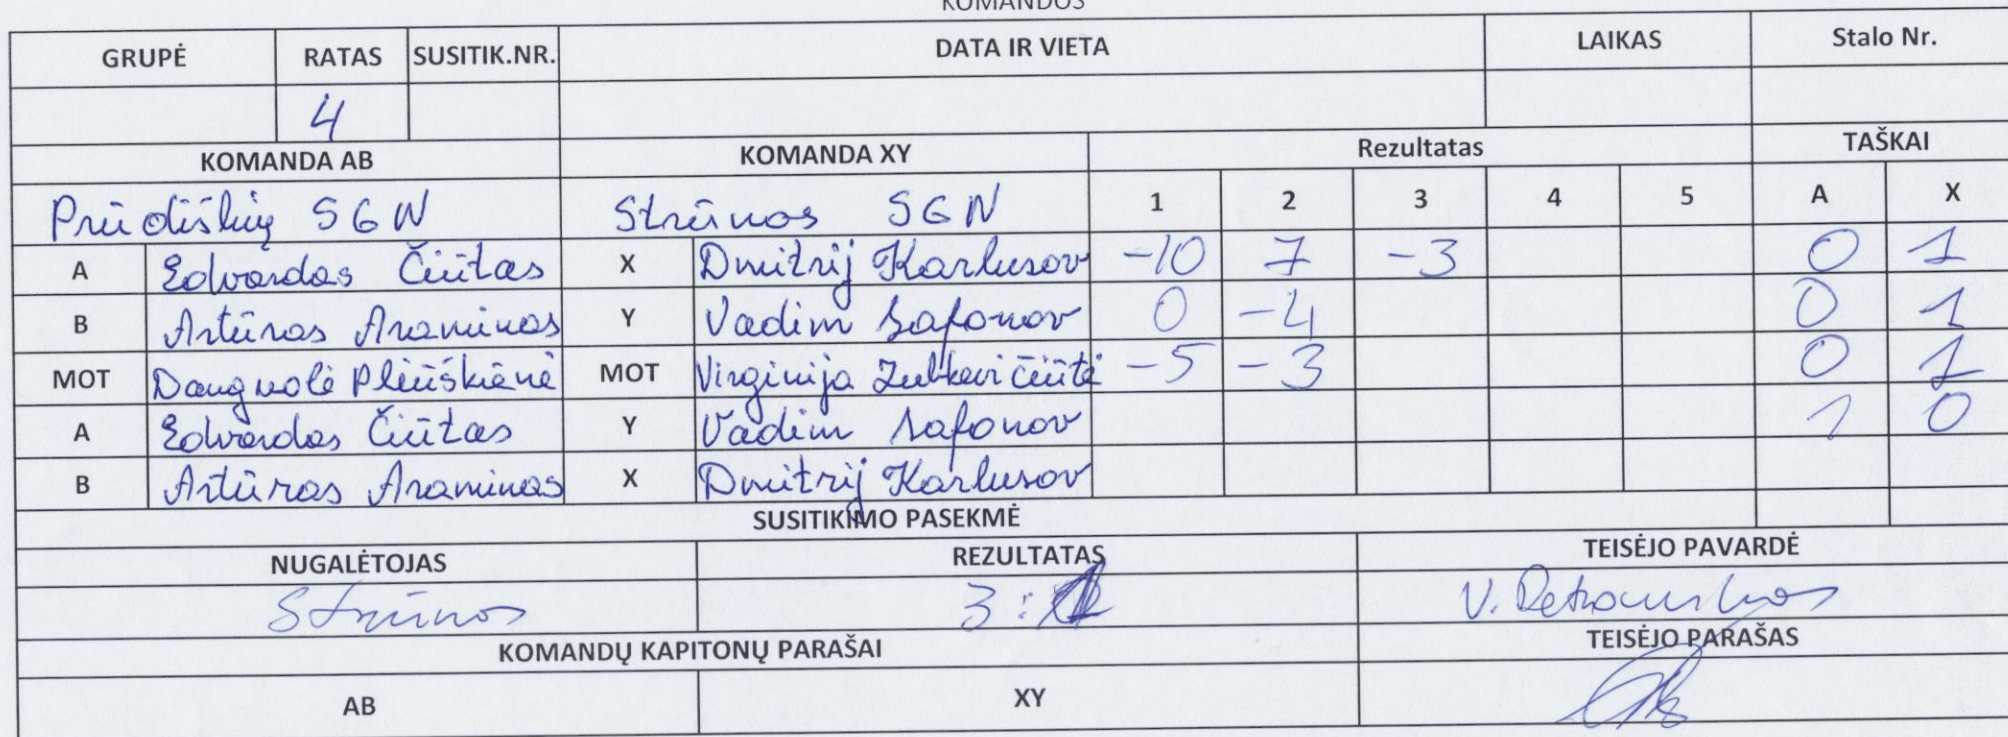 KOMANDOS
GRUPĖ RATAS SUSITIK.NR. DATA IR VIETA LAIKAS Stalo Nr.
4
KOMANDA AB KOMANDA XY Rezultatas TAŠKAI
Prūdiškių SGN Strūnos SGN 1 2 3 4 5 A X
A Edvardas Čiūtas X Dmitrij Karlusov -10 7 -3 0 1
B Artūras Araminas Y Vadim Safonov 0 -4 0 1
MOT Dangvolė Pliūškienė MOT Virginija Zubkevičiūtė -5 -3 0 1
A Edvardas Čiūtas Y Vadim Safonov 1 0
B Artūras Araminas X Dmitrij Karlusov
SUSITIKIMO PASEKMĖ
NUGALĖTOJAS REZULTATAS TEISĖJO PAVARDĖ
Strūnos 3: V.
KOMANDŲ KAPITONŲ PARAŠAI TEISĖJO PARAŠAS
AB XY